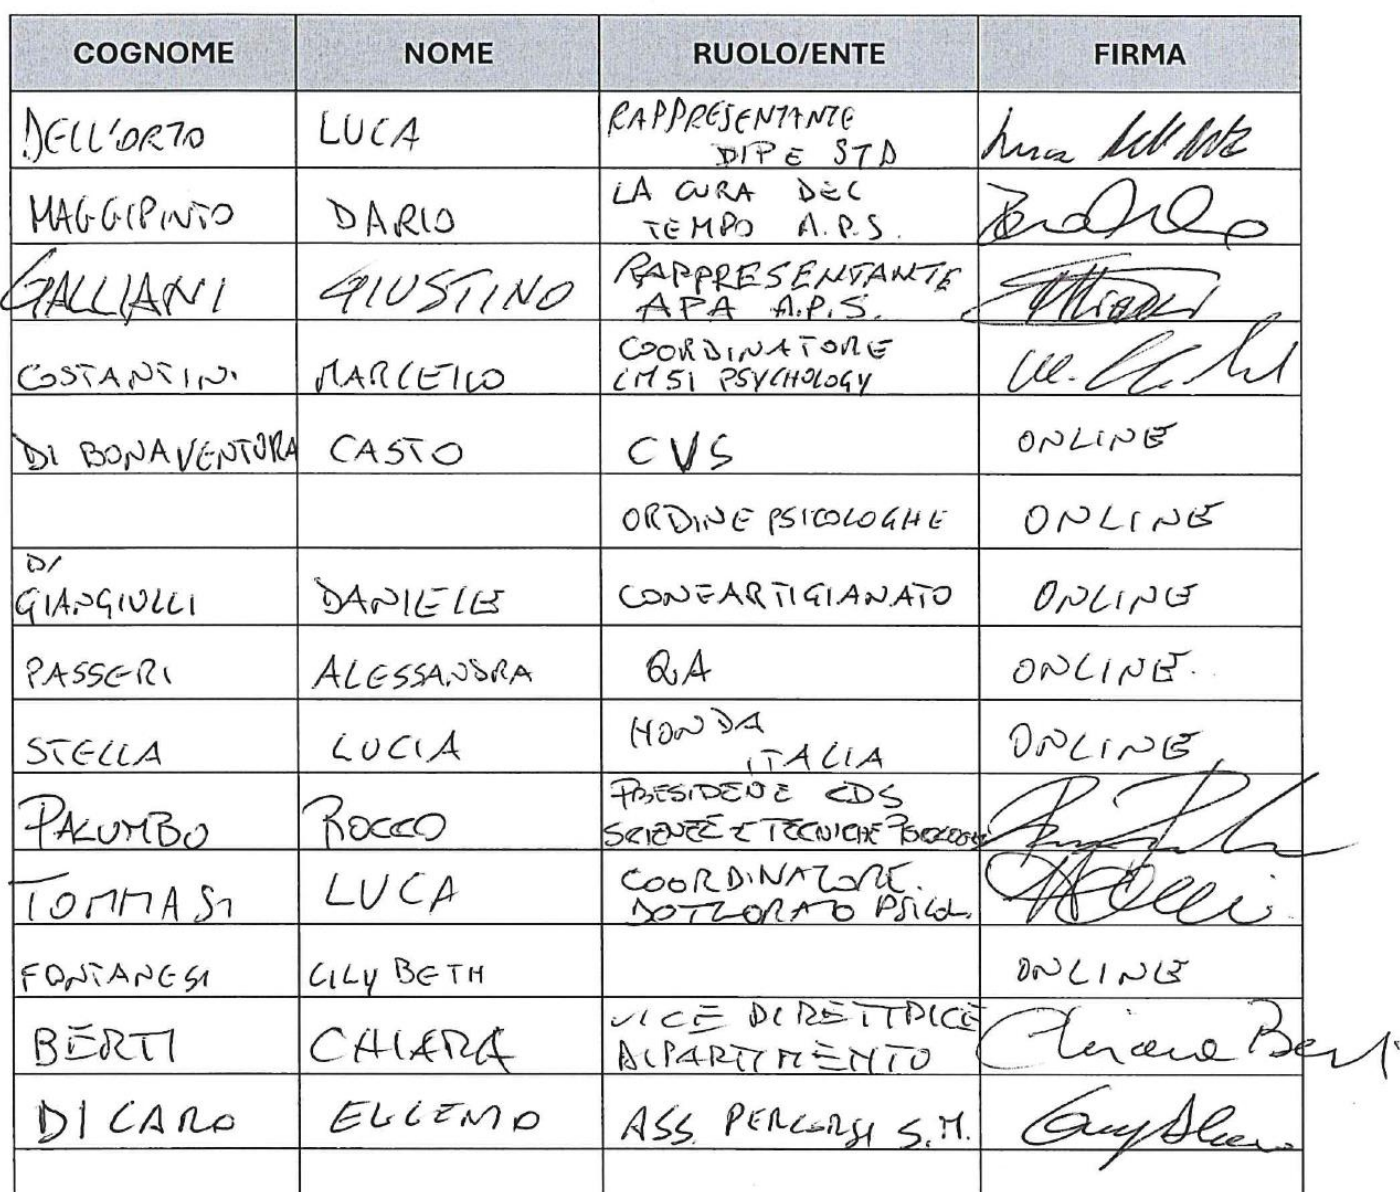 COGNOME NOME RUOLO/ENTE FIRMA
DELL'ORTO LUCA RAPPRESENTANTE
DIP E STD
MAGGIPINTO DARIO LA CURA DEL
TEMPO A.P.S.
GALLIANI GIUSTINO RAPPRESENTANTE
APA A.P.S.
COSTANTINI MARCELLO COORDINATORE
LM51 PSYCHOLOGY
DI BONAVENTURA CASTO CVS ONLINE
ORDINE PSICOLOGHE ONLINE
DI
GIANGIULLI DANIELE CONFARTIGIANATO ONLINE
PASSERI ALESSANDRA QA ONLINE.
STELLA LUCIA HONDA
ITALIA ONLINE
PALUMBO ROCCO PRESIDENTE CDS
SCIENZE E TECNICHE PSICOLOGICHE
TOMMASI LUCA COORDINATORE
DOTTORATO PSICOL.
FONTANESI LILY BETH ONLINE
BERTI CHIARA VICE DIRETTRICE
DIPARTIMENTO Chiara Berti
DI CARO ASS. PERCORSI S.M.